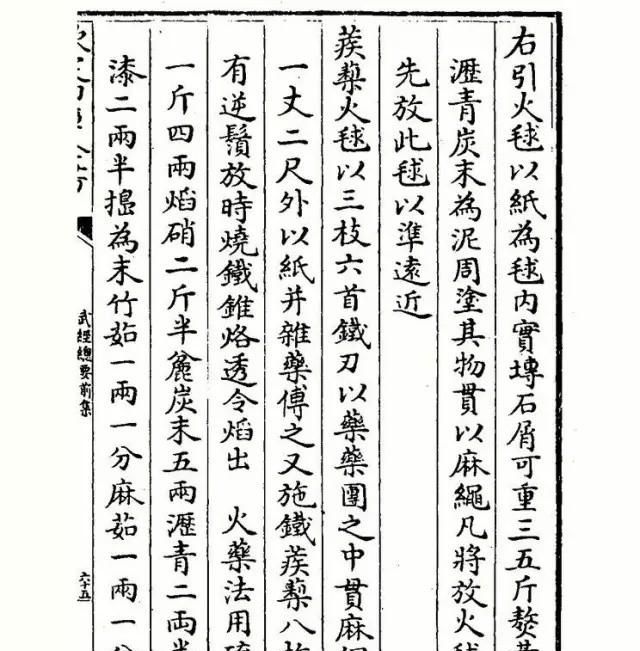 右引火毬以紙為毬內實塼石屑可重三五斤熬黃
瀝青炭末為泥周塗其物貫以麻繩凡將放火毬
先放此毬以準遠近
蒺蔾火毬以三枝六首鐵刃以藥藥團之中貫麻繩
一丈二尺外以紙并雜藥傅之又施鐵蒺蔾八枚
有逆鬚放時燒鐵錐烙透令焰出　火藥法用硫
一斤四兩焰硝二斤半麄炭末五兩瀝青二兩半
漆二兩半搗為末竹茹一兩一分麻茹一兩一分
武經總要前集
六十五